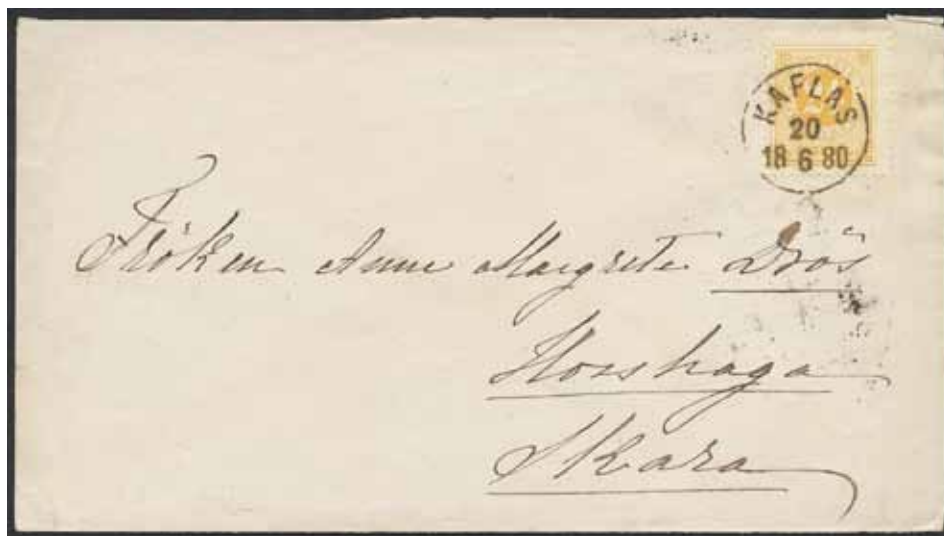 KAFLÅS
20
18 6 80
Fröken Anne Margrete Drös
Horshaga
Skara